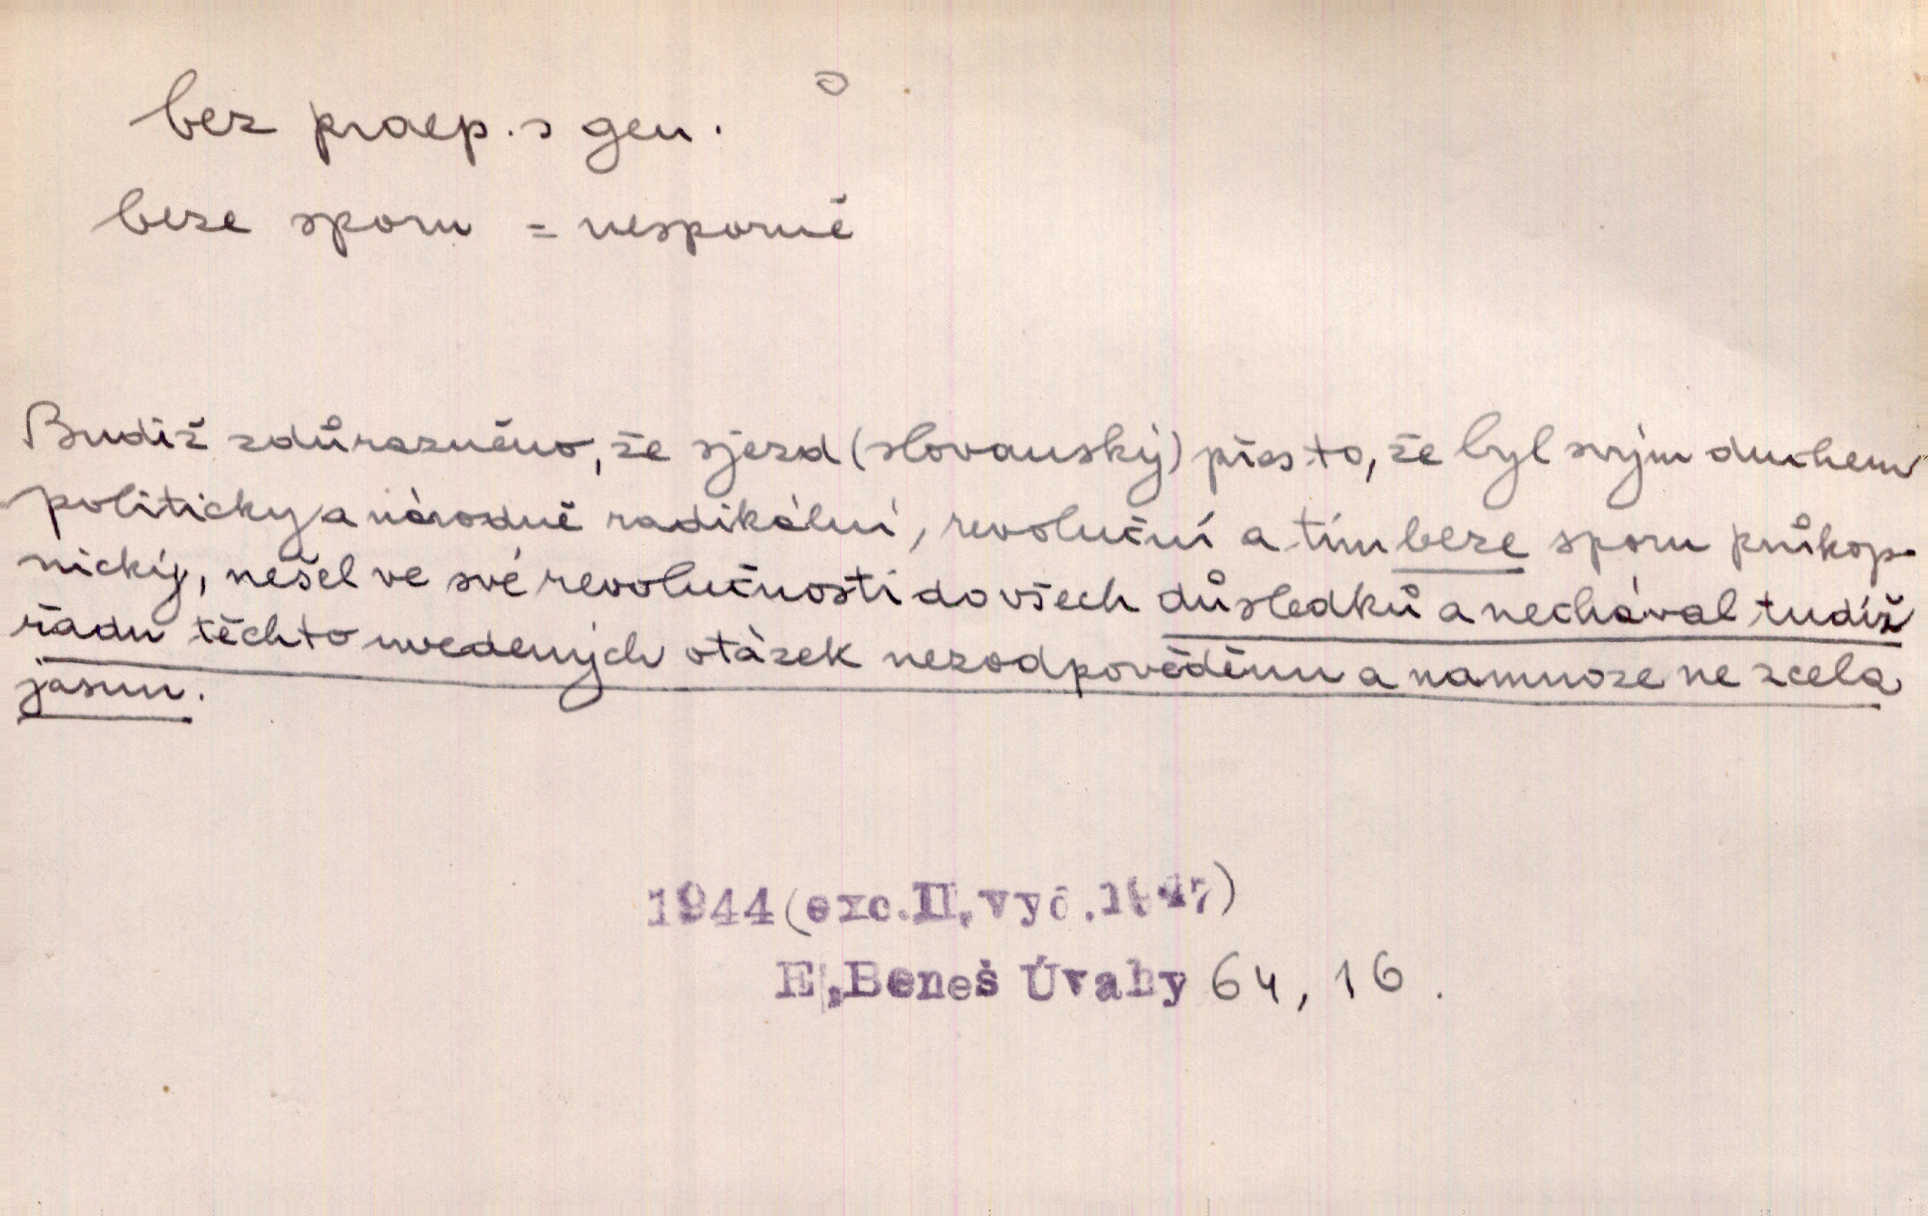 bez praep. s gen.
beze sporu = nesporně
Budiž zdůrazněno, že sjezd (slovanský) přes to, že byl svým duchem
politicky a národně radikální, revoluční a tím beze sporu průkop-
nický, nešel ve své revolučnosti do všech důsledků a nechával tudíž
řadu těchto uvedených otázek nezodpověděnu a namnoze ne zcela
jasnu.
1944 (exc. II. vyd. 1947)
E. Beneš Úvahy 64, 16.